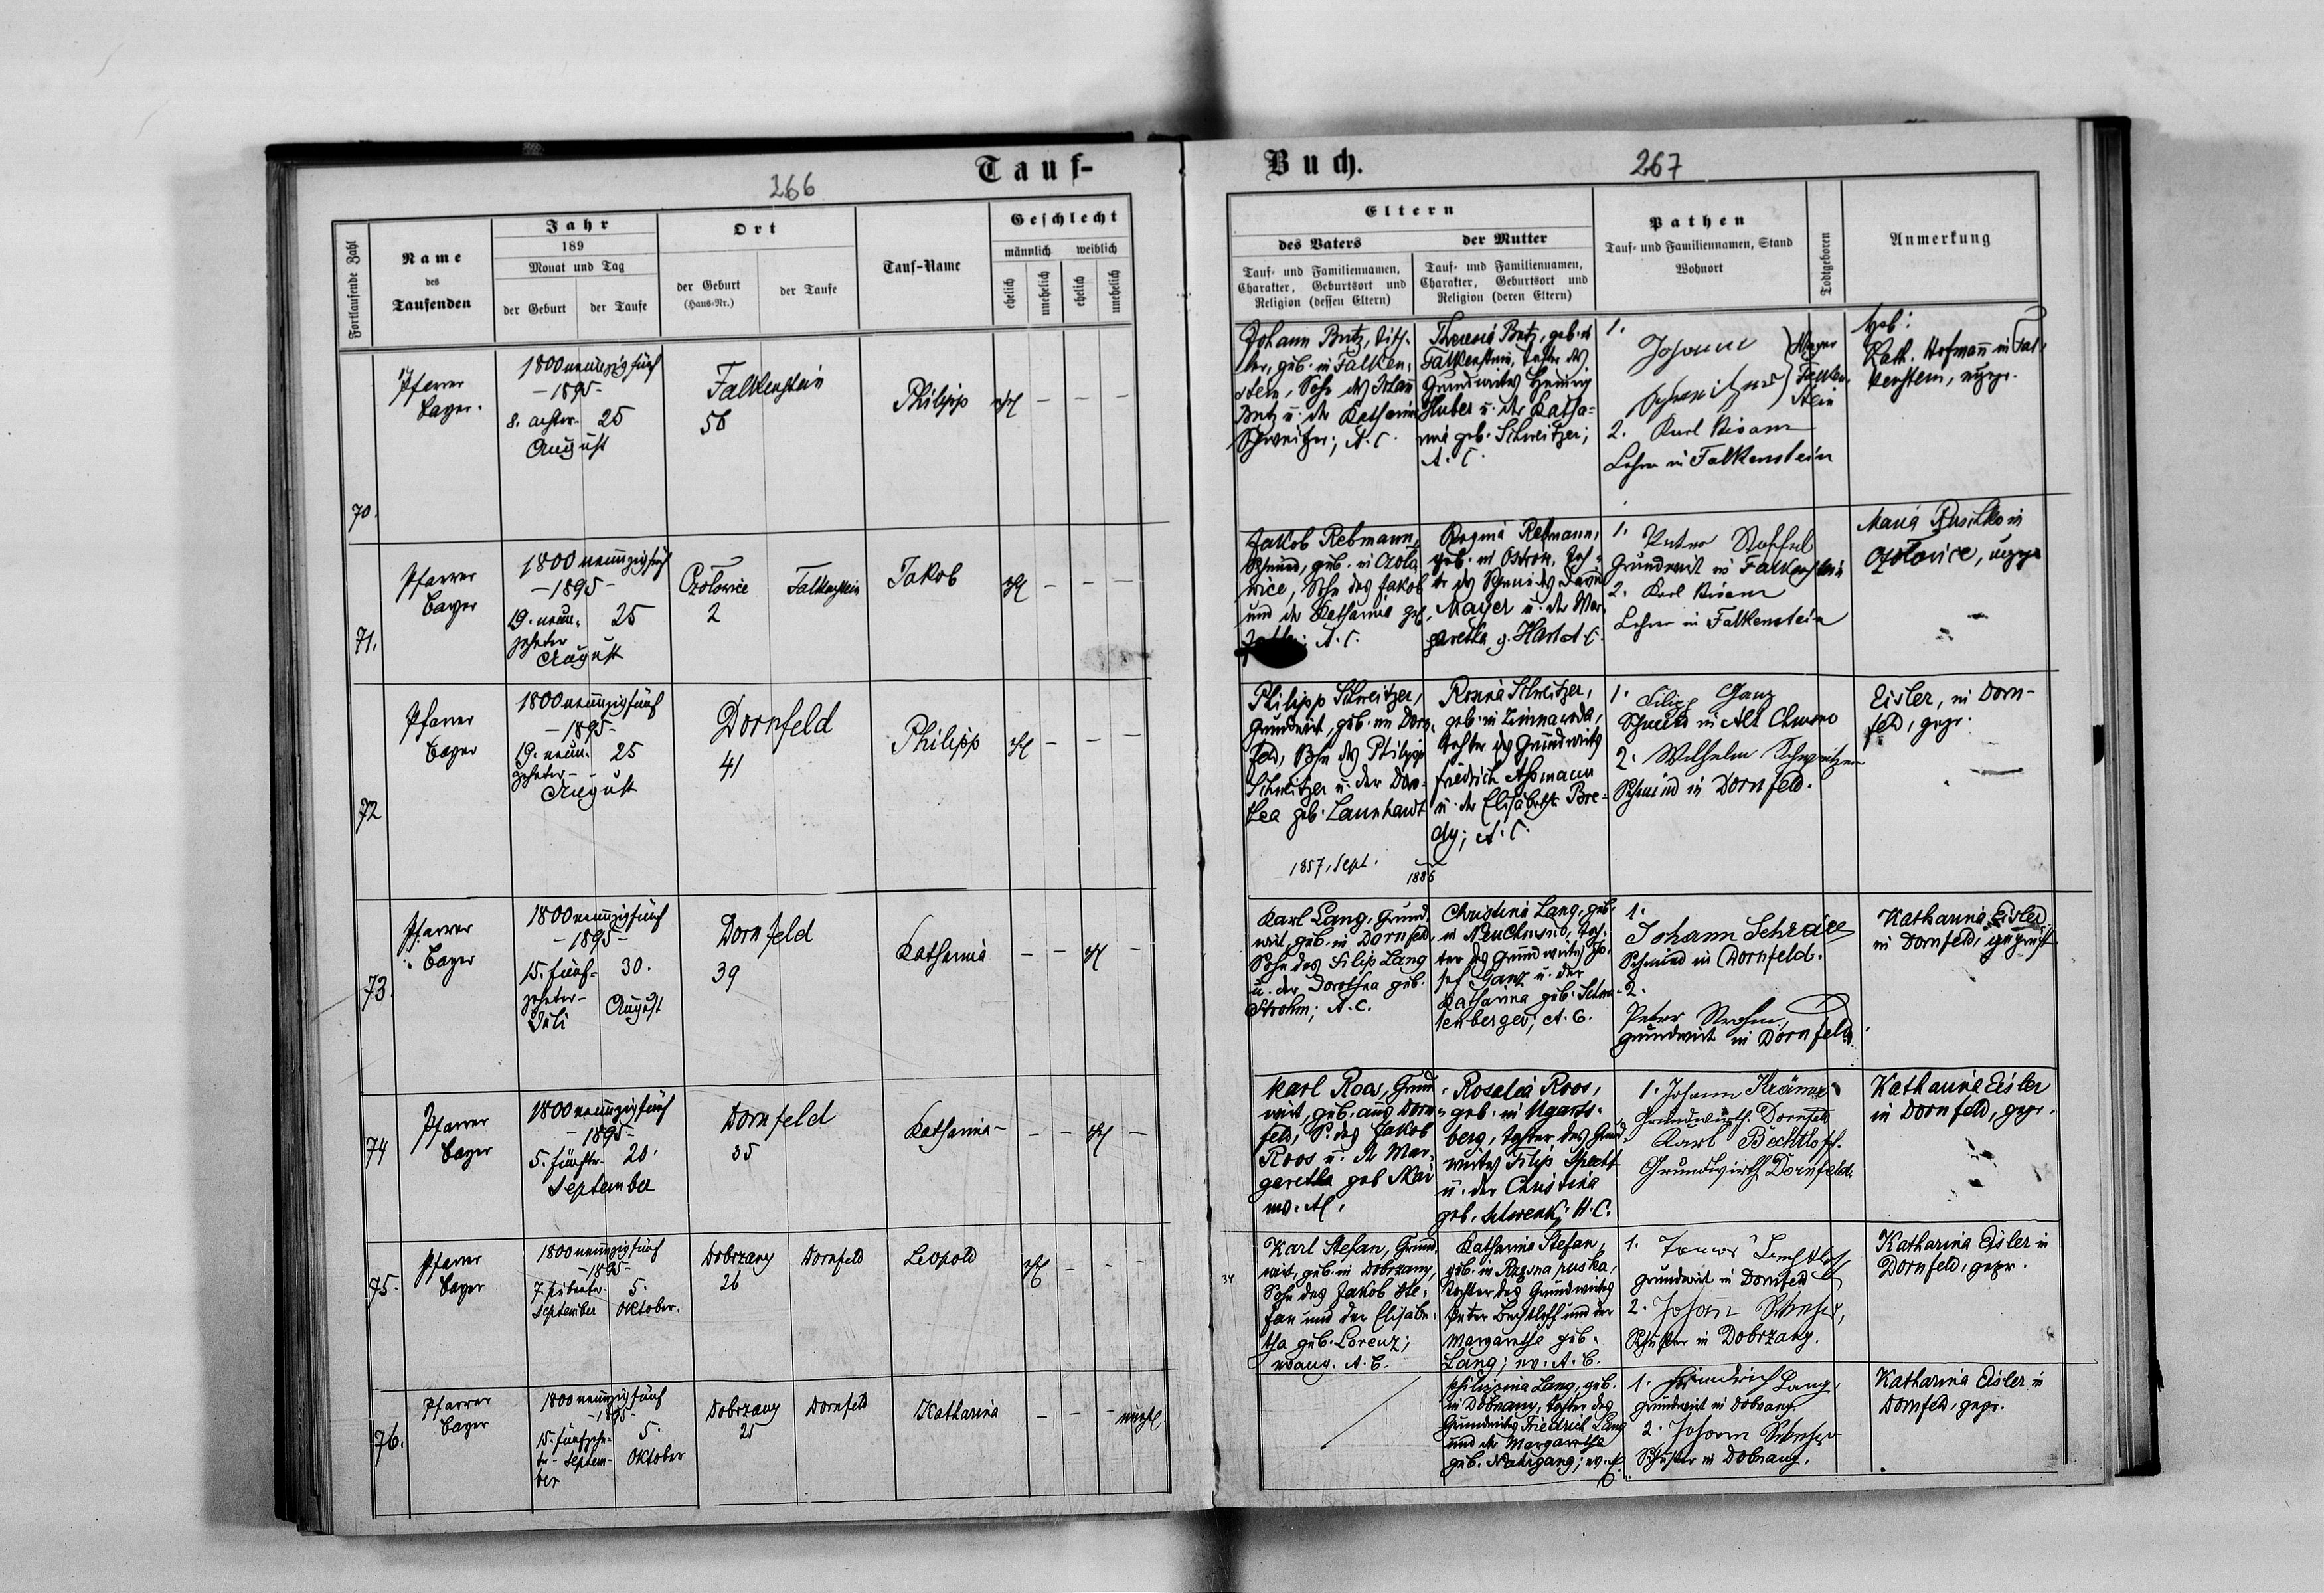 Tauf-
266
Fortlaufende Zahl
Name
des
Taufenden
Jahr
189
Monat und Tag
der Geburt
der Taufe
Ort
der Geburt
(Haus-Nr.)
der Taufe
Tauf-Name
Geschlecht
männlich
weiblich
ehelich
unehelich
ehelich
unehelich
70.
Pfarrer
Bayer.
1800 neunzigfünf
-1895-
8. achter- 25
August
Falkenstein
56
Philipp
ehl
71.
Pfarrer
Bayer
1800 neunzigfünf
-1895-
19. neun- 25
zehnter
August
Czołowice
2
Falkenstein
Jakob
ehl
72
Pfarrer
Bayer
1800 neunzigfünf
-1895-
19. neun- 25
zehnter-
August
Dornfeld
41
Philipp
ehl
73.
Pfarrer
Bayer
1800 neunzigfünf
-1895-
15. fünf- 30.
zehnter-
Juli August
Dornfeld
39
Katharina
ehl
74
Pfarrer
Bayer
1800 neunzigfünf
-1895-
5. fünfter- 20.
September
Dornfeld
35
Katharina-
ehl
75.
Pfarrer
Bayer
1800 neunzigfünf
-1895-
7. siebenter- 5.
September Oktober.
Dobrzany
26
Dornfeld
Leopold
ehl
76.
Pfarrer
Bayer
1800 neunzigfünf
-1895-
15. fünfzehn- 5.
ter- Septem- Oktober
ber
Dobrzany
21
Dornfeld
Katharina
unehl
Buch.
267
Eltern
des Vaters
der Mutter
Tauf- und Familiennamen,
Charakter, Geburtsort und
Religion (dessen Eltern)
Tauf- und Familiennamen,
Charakter, Geburtsort und
Religion (deren Eltern)
Pathen
Tauf- und Familiennamen, Stand
Wohnort
Todtgeboren
Anmerkung
Johann Butz, Tisch-
ler, geb. in Falken-
stein, Sohn des
Butz u. der Katharina
Schweitzer; A. C.
Theresia Butz, geb. in
Falkenstein, Tochter des
Grundwirtes Heinrich
Huber u. der Katha-
rina geb. Schweitzer;
A. C.
1.
Johann
Falken-
stein
2. Karl
Lehrer in Falkenstein
Heb:
Kath. Hofmann in Fal-
kenstein, ungepr.
Jakob Rebmann,
Schmied, geb. in Czoło-
wice, Sohn des Jakob
und der Katharina geb.
A. C.
Regina Rebmann,
geb. in Ostrow, Toch-
ter des Schmiedes
Mayer u. der Mar-
garetha g. A. C.
1. Peter Stoffel
Grundwirt in Falkenstein
2. Karl
Lehrer in Falkenstein
Maria in
Czołowice, ungepr
Philipp Schweitzer,
Grundwirt, geb. in Dorn-
feld, Sohn des Philipp
Schweitzer u. der Doro-
thea geb. Launhardt
1857, Sept.
Rosina Schweitzer,
geb. in Zimnawoda,
Tochter des Grundwirtes
Friedrich Aßmann
u. der Elisabeth Bre-
dy; A. C.
1886
1. Filipp Ganz
Schmied in Alt Chwono
2. Wilhelm Schweitzer
Schmied in Dornfeld.
Eisler, in Dorn-
feld, gepr.
Karl Lang, Grund-
wirt, geb. in Dornfeld,
Sohn des Filip Lang
u. der Dorothea geb.
Strohm; A. C.
Christina Lang, geb.
in NeuChwono, Toch-
ter des Grundwirtes Jo-
sef Ganz u. der
Katharina geb.
A. C.
1.
Johann
Schmied in Dornfeld.
2.
Peter Strohm,
Grundwirt in Dornfeld.
Katharina Eisler
in Dornfeld, geprüft
Karl Roos, Grund-
wirt, geb. aus Dorn-
feld, S. des Jakob
Roos u. der Mar-
garetha geb
Rosalia Roos,
geb. in Ugarts-
berg, Tochter des Grund-
wirtes Filip Specht
u. der Christina
geb. Schwenk; A. C.
1. Johann Krämer
Grundwirth. Dornfeld
Karl Bechtloff.
Grundwirth Dornfeld.
Katharina Eisler
in Dornfeld, gepr.
34
Karl Stefan, Grund-
wirt, geb. in Dobrzany,
Sohn des Jakob Ste-
fan und der Elisabe-
tha geb. Lorenz;
evang. A. C.
Katharina Stefan,
geb. in Rozsna puska,
Tochter des Grundwirtes
Peter Bechtloff und der
Margaretha geb.
Lang; ev. A. C.
1. Bechtloff
Grundwirt in Dornfeld
2. Johann
Schuster in Dobrzany.
Katharina Eisler in
Dornfeld, gepr.
Philippina Lang, geb.
in Dobrzany, Tochter des
Grundwirtes Friedrich Lang
und der Margaretha
geb. Nahrgang; ev. A.
C.
1. Friedrich Lang,
Grundwirt in Dobrzany.
2. Johann
Schuster in Dobrzany.
Katharina Eisler in
Dornfeld, gepr.